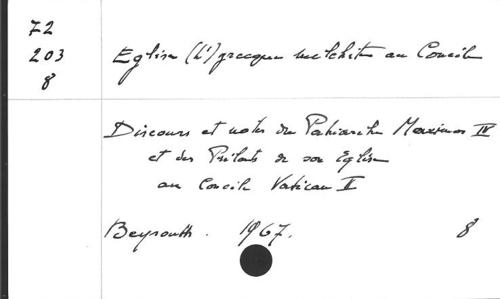 72
203
8
Eglise (L') grecque melchite au Concile
Discours et notes du Patriarche Maximos IV
et des Prélats de son Eglise
au Concile Vatican II
Beyrouth. 1967. 8